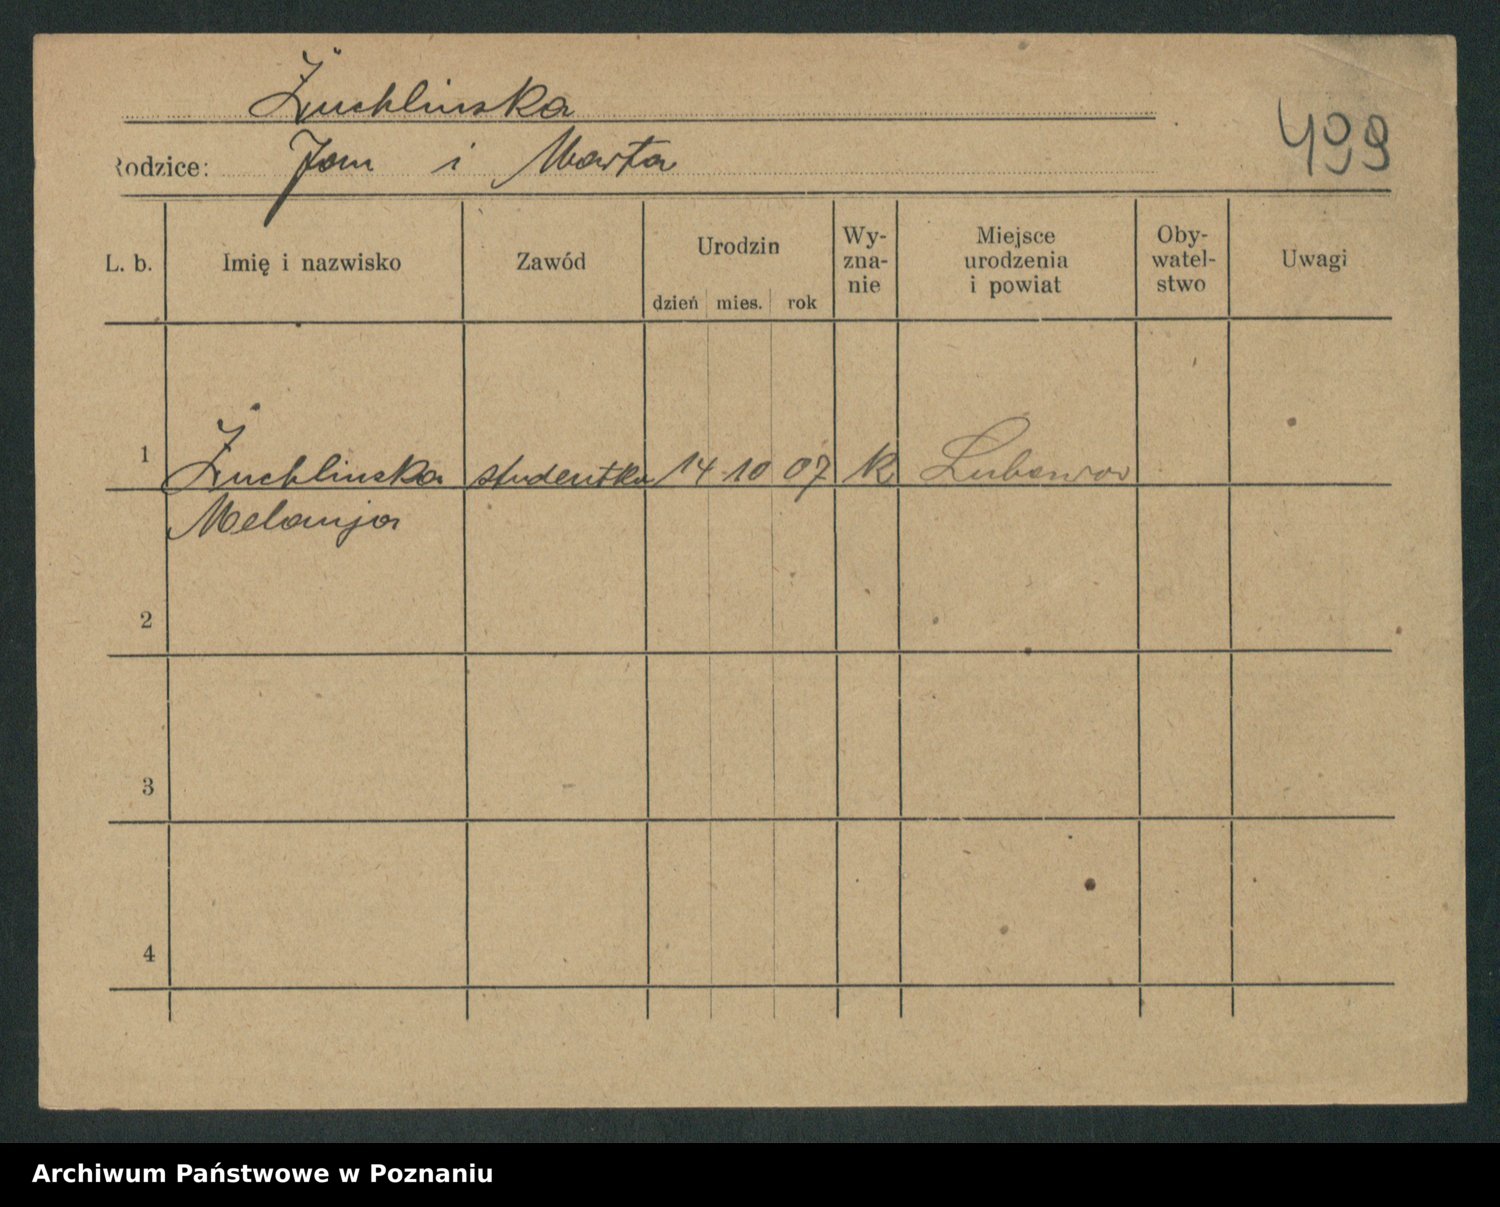 Żuchlinska
499
Rodzice: Jan i Marta
L. b. Imię i nazwisko Zawód Urodzin dzień mies. rok Wy-zna-nie Miejsce urodzenia i powiat Oby-watel-stwo Uwagi
1 Żuchlinska studentka 14 10 07 k
Melanja
2
3
4
Archiwum Państwowe w Poznaniu